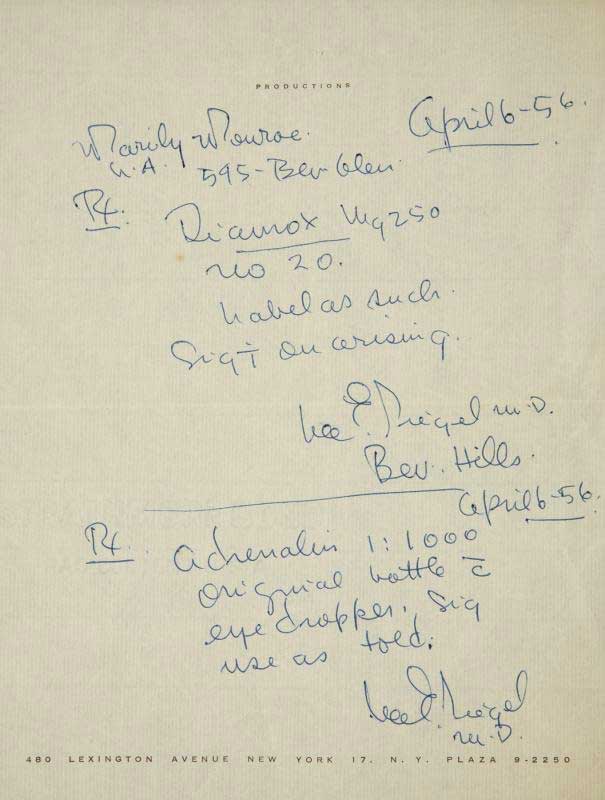 PRODUCTIONS
April 6-56.
Marily Monroe.
L.A. 595-Bev Glen.
Rx. Diamox Mg 250
No 20.
Label as such.
Sig † on arising.
Lee E. Siegel M.D.
Bev. Hills.
April 6-56.
Rx. Adrenalin 1:1000
original bottle c̄
eye dropper. Sig
use as told.
Lee E. Siegel
M.D.
480 LEXINGTON AVENUE NEW YORK 17. N. Y. PLAZA 9-2250